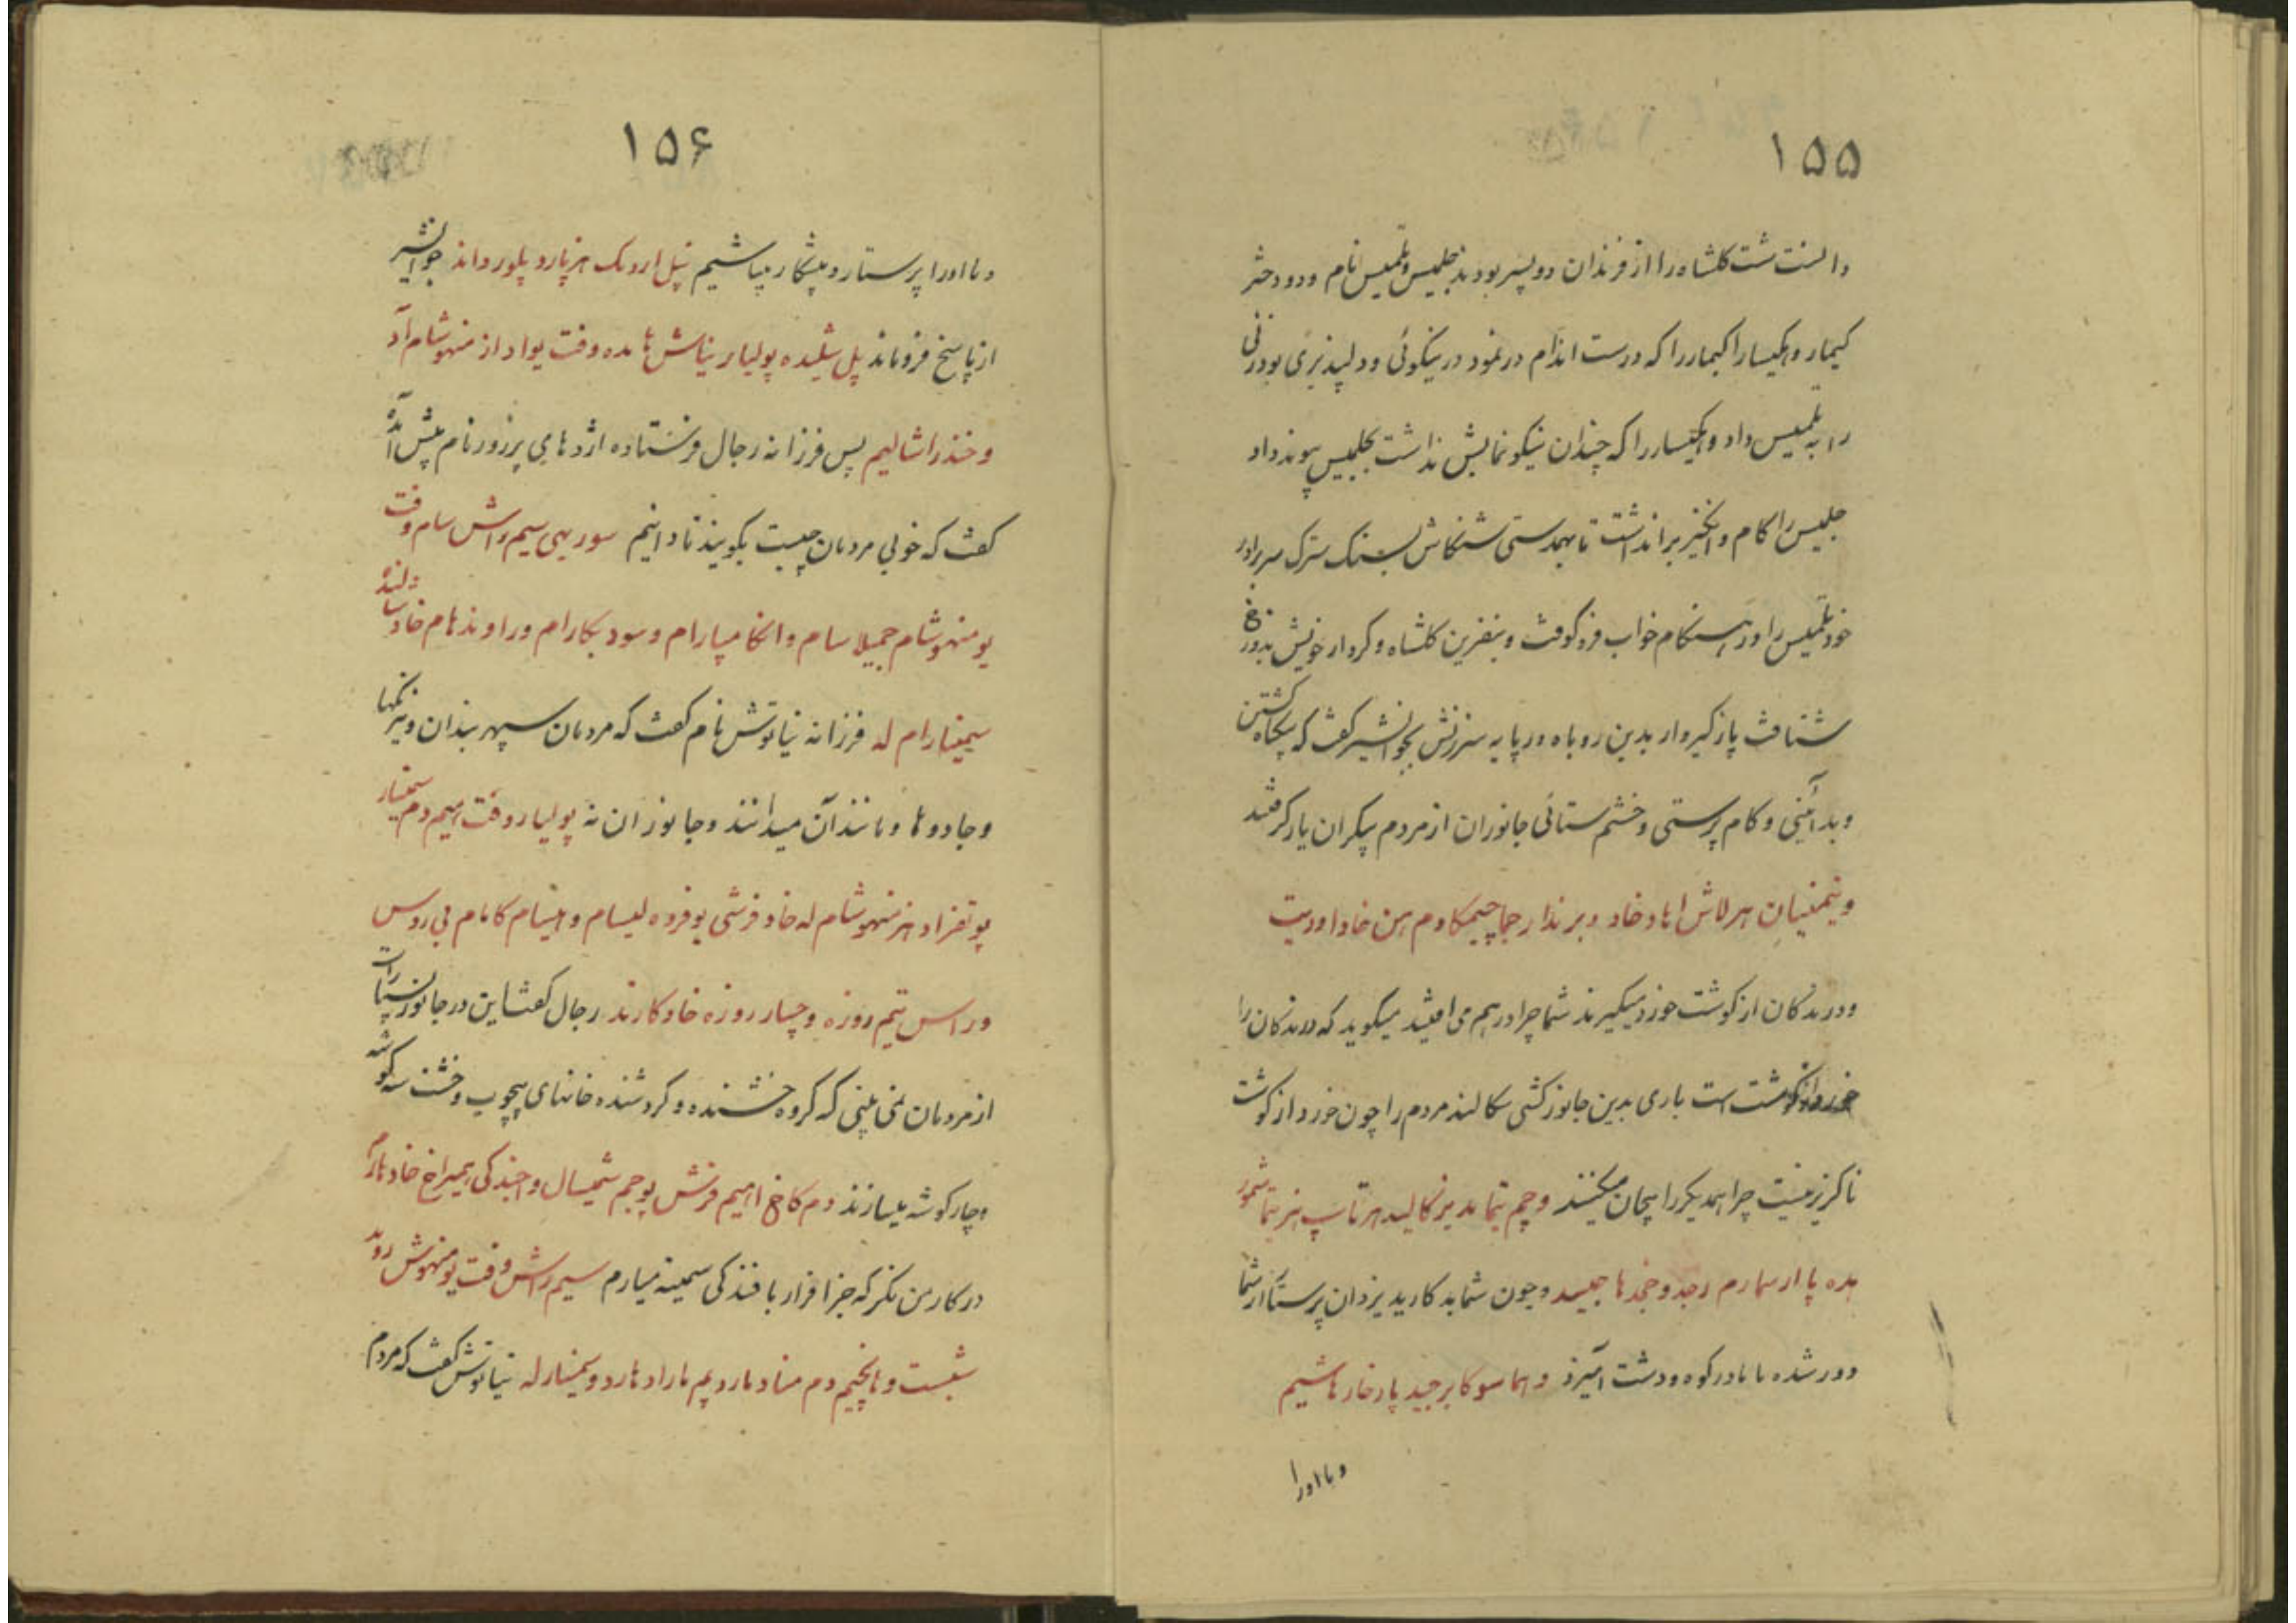 ۱۵۵
دانست شت کلشاه را از فرزندان دو پسر بودند جلمیس و تلمیس نام و دو دختر
کیمار و اکیسا را کیمار را که درست اندام در نمود در نیکوئی و دلپذیری بود زنی
را به تلمیس داد و اکیسار را که چندان نیکو نمایش نداشت بجلمیس پیوند داد
جلمیس را کام و انگیز برانداشت تا بهمدستی سنگاش بسنک سترک سر برادر
خود تلمیس را در هنگام خواب فرو کوفت و بنفرین کلشاه و کردار خویش بدوزخ
شتافت پاز کیروار بدین روباه در پایه سرزنش بجوانشیر کفت که بیگناه کشتن
و بد آئینی و کام پرستی و خشم ستائی جانوران از مردم پیکران یاد گرفتند
و نیمنیان هر لاش اهاد خاد و برندار جما چیمکا دم هن خاد اودیت
و درندگان از کوشت خورد میگیرند شما چرا در هم می افتید میگوید که درندگان را
خورد از کوشت است باری بدین جانور کشی سکالند مردم را چون خورد از کوشت
ناگزیر نیست چرا همدیگر را بیجان میکنند و چم تیما بد یزکالید هرتاسپ هزتیما شمور
هده پا ارسمارم رجد و خجد ها جیید و چون شما بد کارید یزدان پرستار از شما
دور شده با ما در کوه و دشت آمیزد و هما سو کا بر جید پارخار هاشیم
و ما او را
۱۵۶
و ما او را پرستار و پیشکار میباشیم نپل اردنک هزپارو پلور داند جوانشیر
از پاسخ فروماند پل شلیده پولیار نیناش هامده وفت یواد از منهوشام آد
و خند راشالیم پس فرزانه رجال فرستاده اژدهای پرزور نام پیش آمده
کفت که خوبی مردمان چیست بگویند تا دانیم سور یهی سیم راش سام وفت
یو منهوشام جمیلا سام و انکا مپارام و سود بکارام و راوندهام خاد سالند
سیمنارام له فرزانه نیاتوش نام کفت که مردمان سپهر بندان و نیرنگها
و جادوها و مانند آن میدانند و جانوران نه پولیار وفت اهیم دم سیمنار
پو تفزاد هز منهوشام له خاد فرشی یو فروه لیسام و اینسام کامام بی روس
و راس تیم روزه و چسار روزه خاد کارند رجال کفت این در جانوران بیشتر است
از مردمان نمی بینی که کروه خشنده و کردشنده خانهای بیچوب و خشت سه کوشه
و چار کوشه میسازند دم کاخ اهیم فرنش یو جم شمیسال و اجندکی بیمراخ خاد مارم
در کار من نکر که جز افزار بافندکی سیمینه میارم سیم راش وفت یو منهوش روند
شبست و مانجیم دم مناد مارد یم ماراد مارد و سیمنار له نیاتوش کفت که مردم